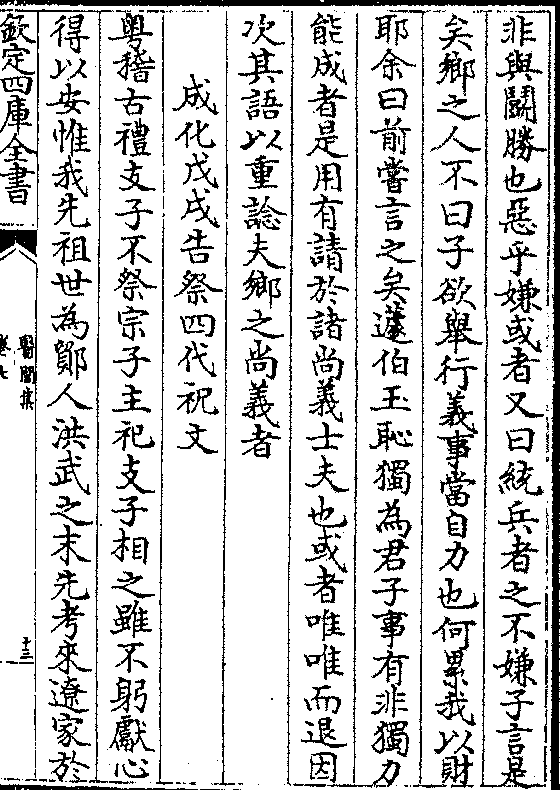 非與鬪勝也惡乎嫌或者又曰統兵者之不嫌子言是
矣鄉之人不曰子欲舉行義事當自力也何累我以財
耶余曰前嘗言之矣蘧伯玉恥獨為君子事有非獨力
能成者是用有請於諸尚義士夫也或者唯唯而退因
次其語以重諗夫鄉之尚義者
成化戊戌告祭四代祝文
粤稽古禮支子不祭宗子主祀支子相之雖不躬獻心
得以安惟我先祖世為鄞人洪武之末先考來遼家於
欽定四庫全書
醫閭集
卷七
十三